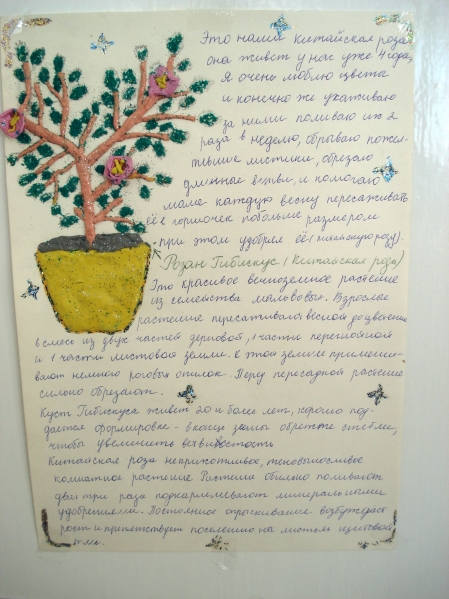 Это наша Китайская роза
она живет у нас уже 4 года,
я очень люблю цвета
и конечно же ухаживаю
за ними поливаю их 2
раза в неделю, обрываю пожел-
тевшие листики, обрезаю
длинные ветви, и помогаю
маме каждую весну пересаживать
её в горшочек побольше размером
при этом удобряя её (китайскую розу).
Розан Гибискус (Китайская роза)
Это красивое вечнозеленое растение
из семейства мальвовых. Взрослое
растение пересаживают весной до цветения
в смесь из двух частей дерновой, 1 части перегнойной
и 1 части листовой земли. К этой земле примеши-
вают немного роговых опилок. Перед пересадкой растение
сильно обрезают.
Куст Гибискуса живет 20 и более лет, хорошо под-
дается формировке - в конце зимы обрежте стебли,
чтобы увеличить ветвистость
Китайская роза неприхотливое, теновыносливое
комнатное растение. Растение обильно поливают
два три раза подкармливают минеральными
удобрениями. Постоянное опрыскивание возбуждает
рост и препятствует поселению на листьях щитовой
тли.